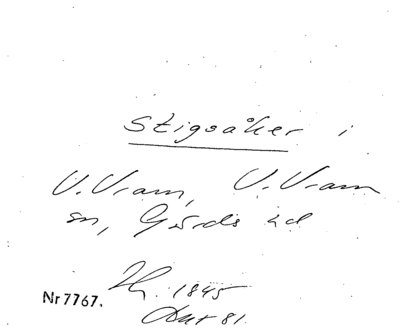 Stigsåker i
V. Vram, V. Vram
sn, Gärds hd
1845
Nr 7767.
Akt 81.